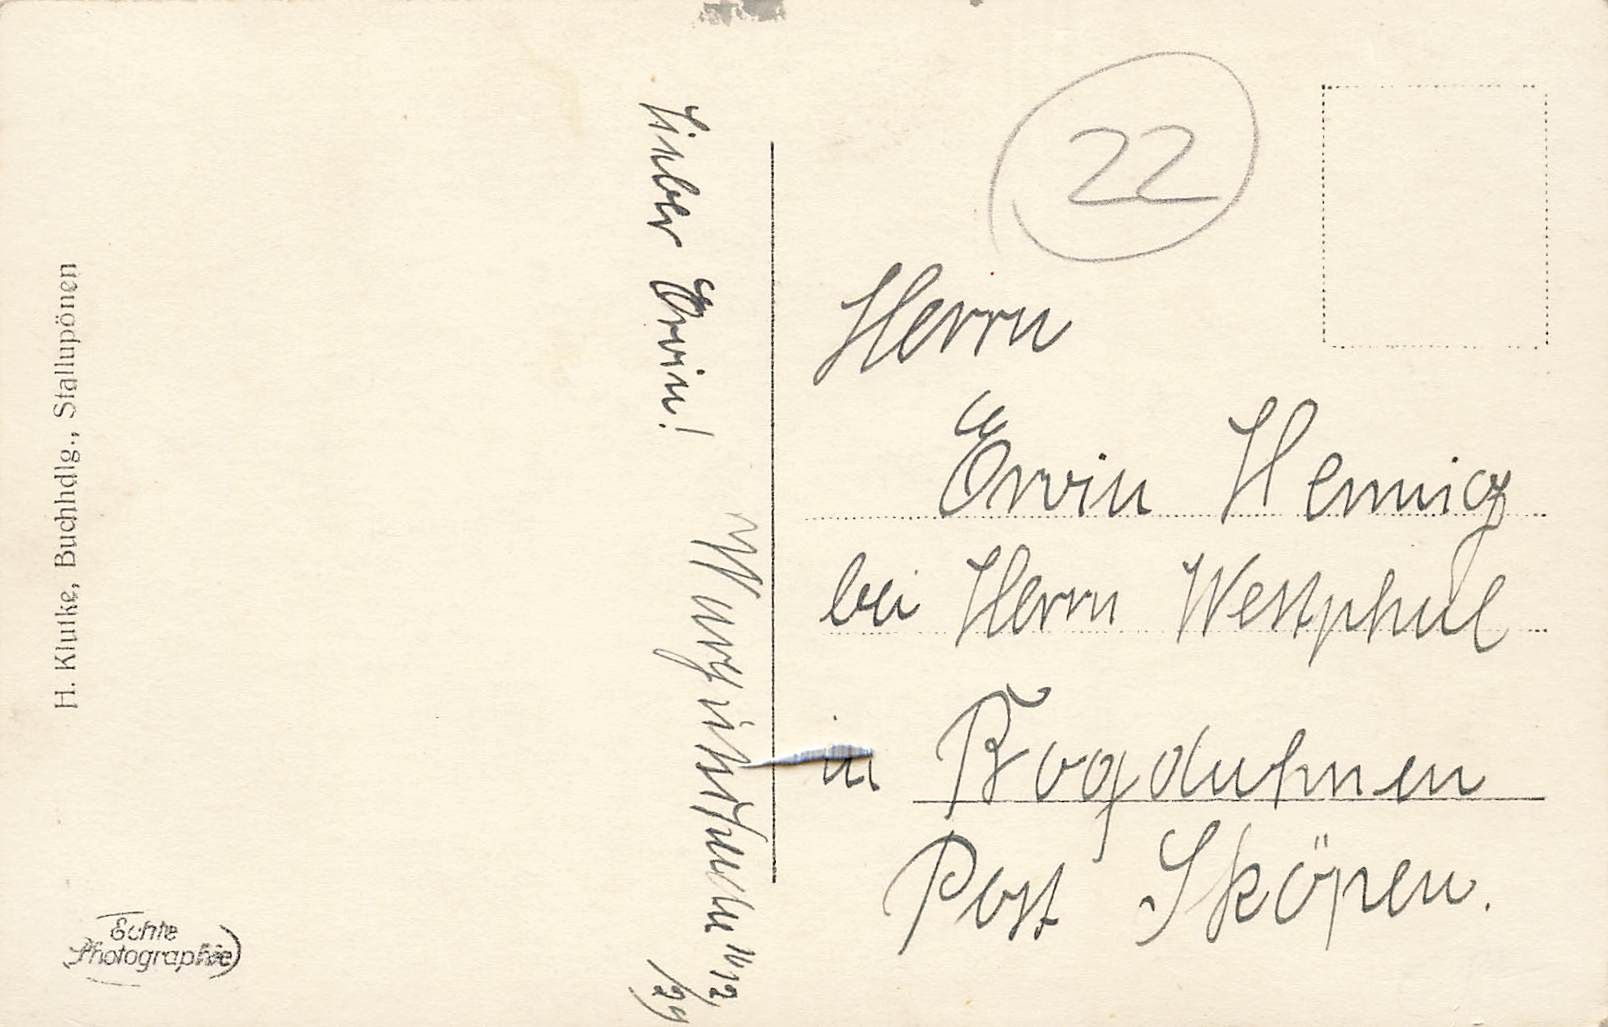 H. Klutke, Buchhdlg., Stallupönen
Echte
Photographie
Lieber Erwin!
16/12
/29
22
Herrn
Erwin Hennig
bei Herrn Westphal
in Bogdahnen
Post Sköpen.